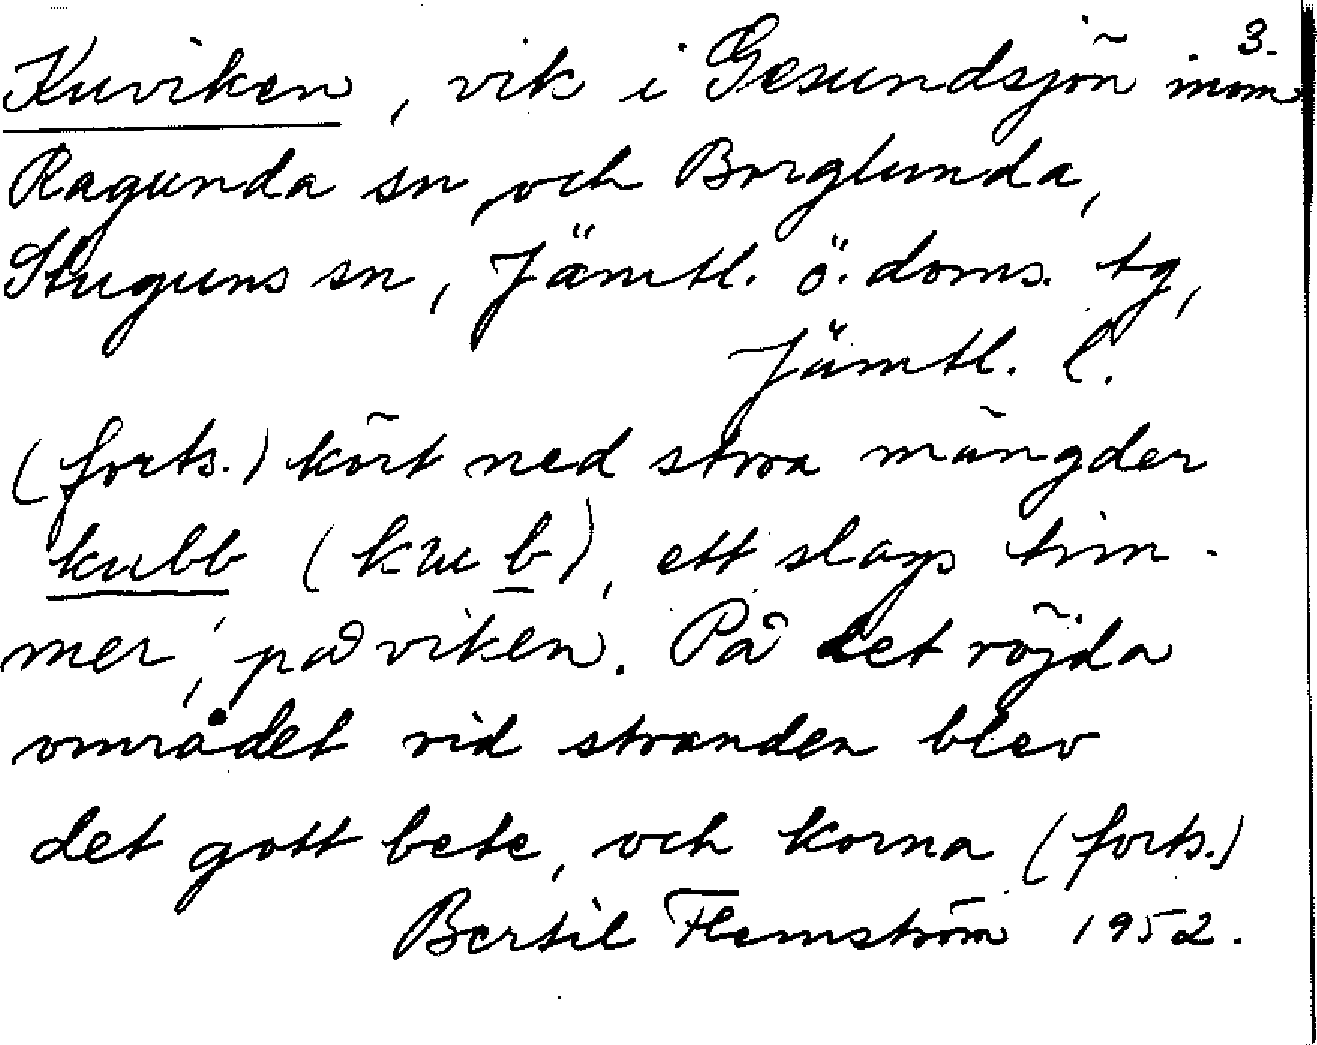 3.
Kuviken, vik i Gesundsjön inom
Ragunda sn, och Borglunda,
Stuguns sn, Jämtl. ö. doms. tg,
Jämtl. l.
(forts.) kört ned stora mängder
kubb (kub), ett slags tim-
mer, på viken. På det röjda
området vid stranden blev
det gott bete, och korna (forts.)
Bertil Flemström 1952.